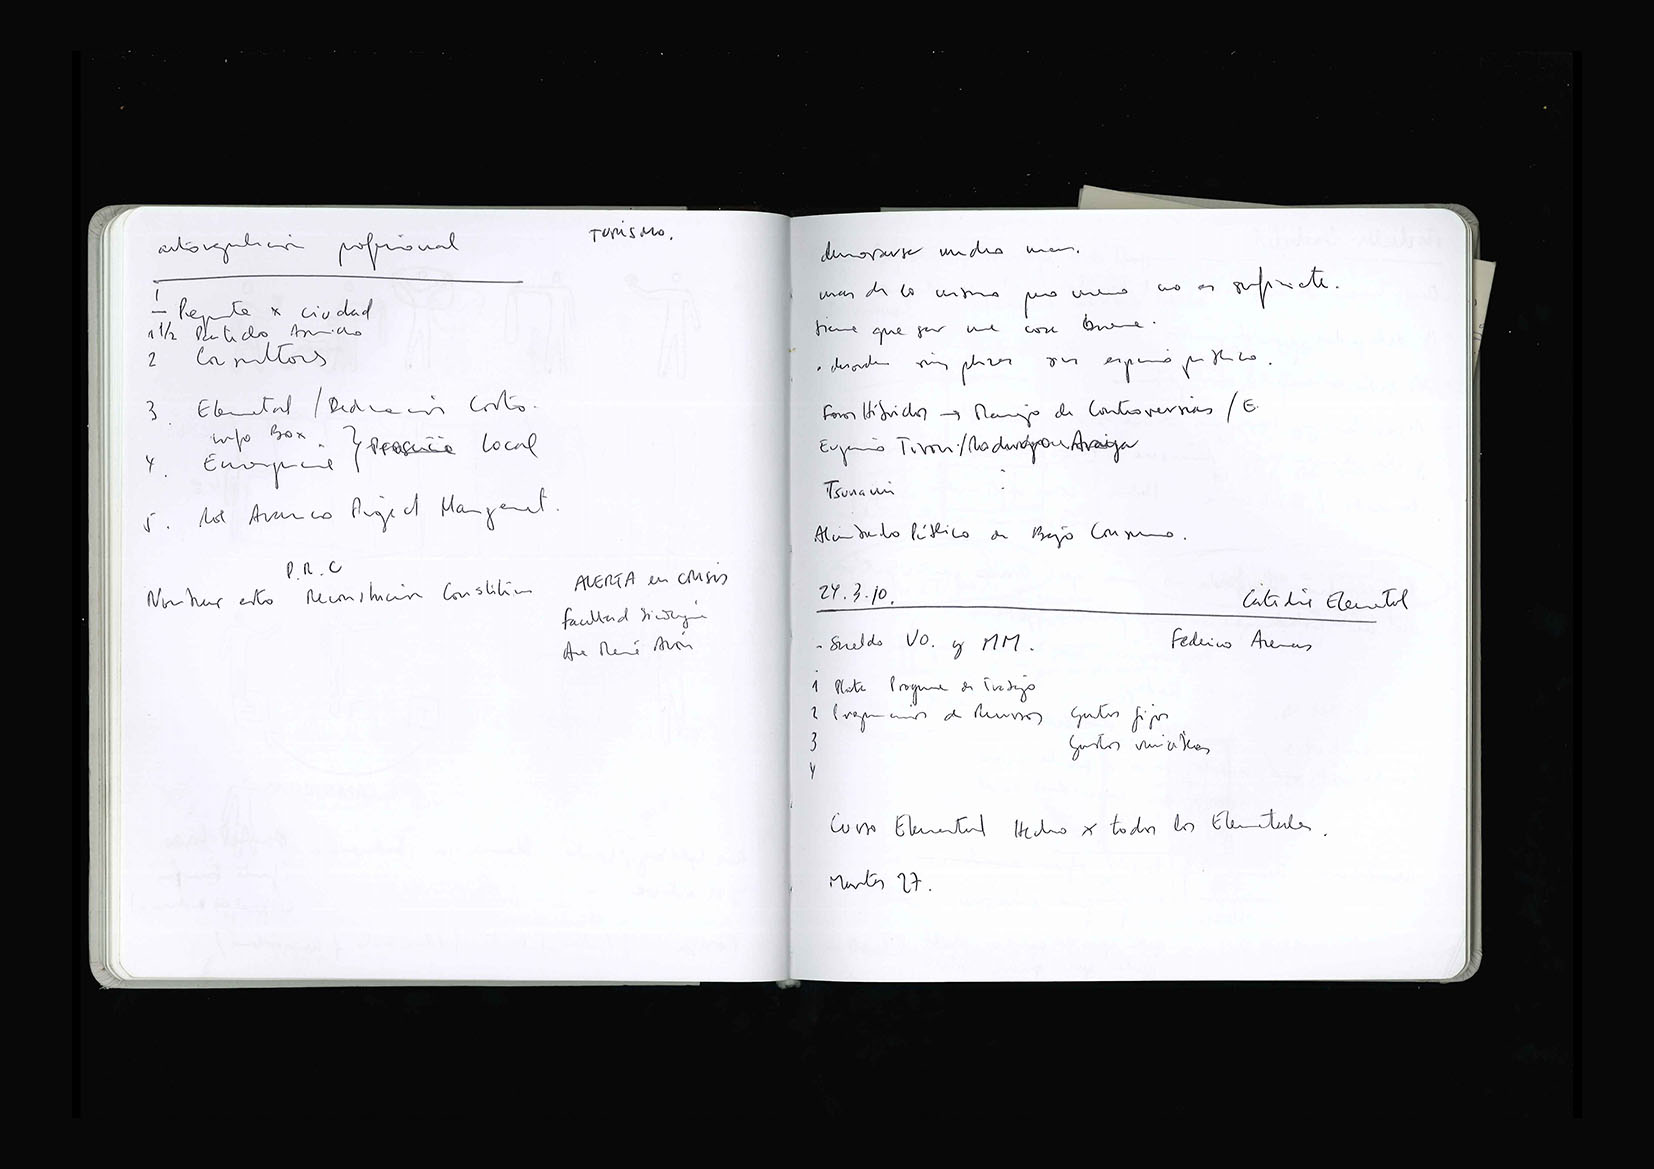 autoregulación profesional
TURISMO.
1
Pregunta x ciudad
1 1/2 Partido
2 Consultores
3. Elemental / Reducción Costo.
info Box.
4. Emergencia } Presencia Local
5. Arauco Project Management.
P.R.C
Nombrar esto Reconstrucción Constitución
ALERTA en CRISIS
Facultad Sicología
René
demorarse mucho mas.
mas de lo mismo pero menos no es suficiente.
tiene que ser una cosa buena.
espacio público.
Foros Híbridos → Manejo de Controversias / E.
Eugenio Tironi /
Tsunami
Alumbrado Público de Bajo Consumo.
24.3.10.
Cátedra Elemental
- Sueldo VO. y MM.
Federico Arenas
1 Programa de Trabajo
2 de Recursos gastos fijos
3 gastos variables
4
Curso Elemental Hecho x todos los Elementales.
Martes 27.